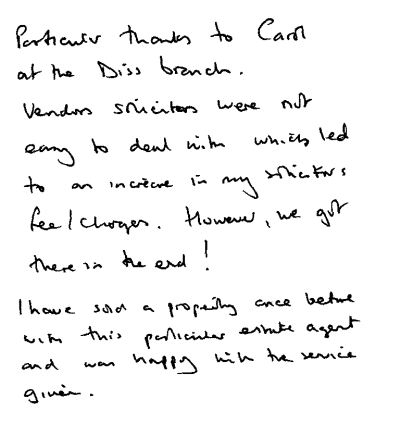 Particular thanks to Carol
at the Diss branch.
Vendors solicitors were not
easy to deal with which led
to an increase in my solicitors
fee/charges. However, we got
there in the end!
I have sold a property once before
with this particular estate agent
and was happy with the service
given.